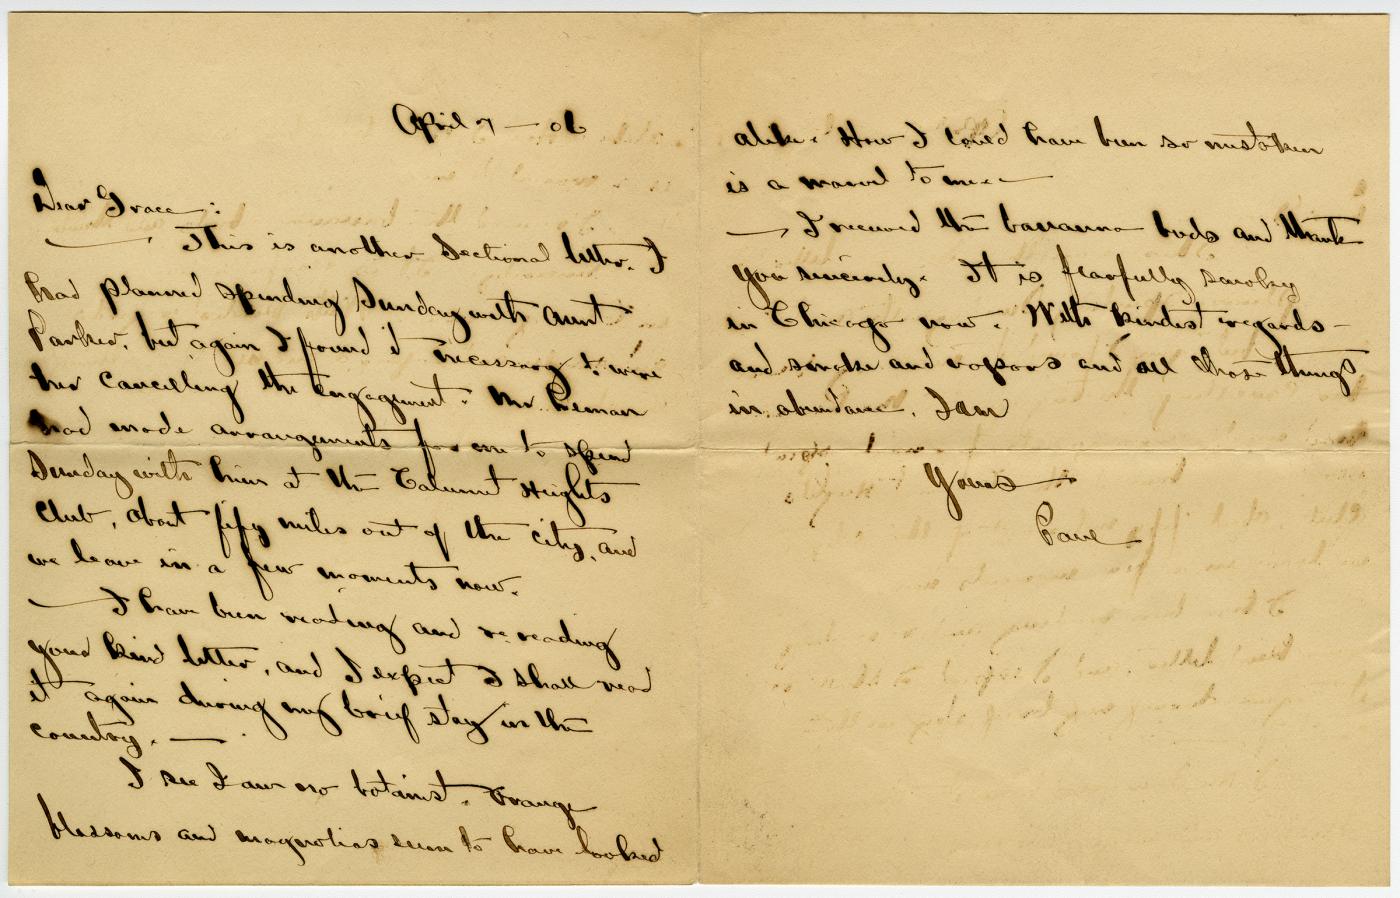 April 7 — 06
Dear Grace:
This is another Sectional letter. I
had planned spending Sunday with Aunt
Parker, but again I found it necessary to wire
her cancelling the engagement. Mr.
had made arrangements for me to spend
Sunday with him at the Calumet Heights
Club, about fifty miles out of the city, and
we leave in a few moments now.
— I have been reading and re reading
your kind letter, and I expect I shall read
it again during my brief stay in the
country. —
I see I am no botanist. Orange
blossoms and magnolias seem to have looked
alike. How I could have been so mistaken
is a marvel to me. —
— I received the bananna buds and thank
you sincerely. It is fearfully smoky
in Chicago now. With kindest regards —
and smoke and vapors and all those things
in abundance, I am
Yours
Paul